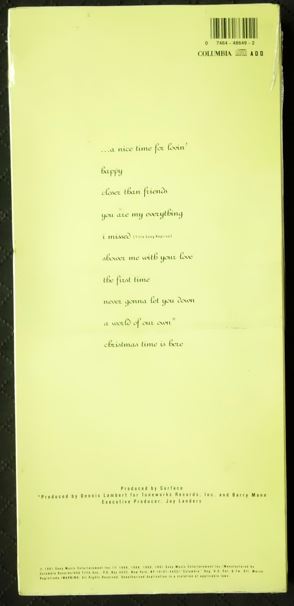 0 7464-48649-2
COLUMBIA ADD
...a nice time for lovin'
happy
closer than friends
you are my everything
i missed
shower me with your love
the first time
never gonna let you down
a world of our own*
christmas time is here
Produced by Surface
*Produced by Dennis Lambert for Tuneworks Records, Inc. and Barry Mann
Executive Producer: Jay Landers